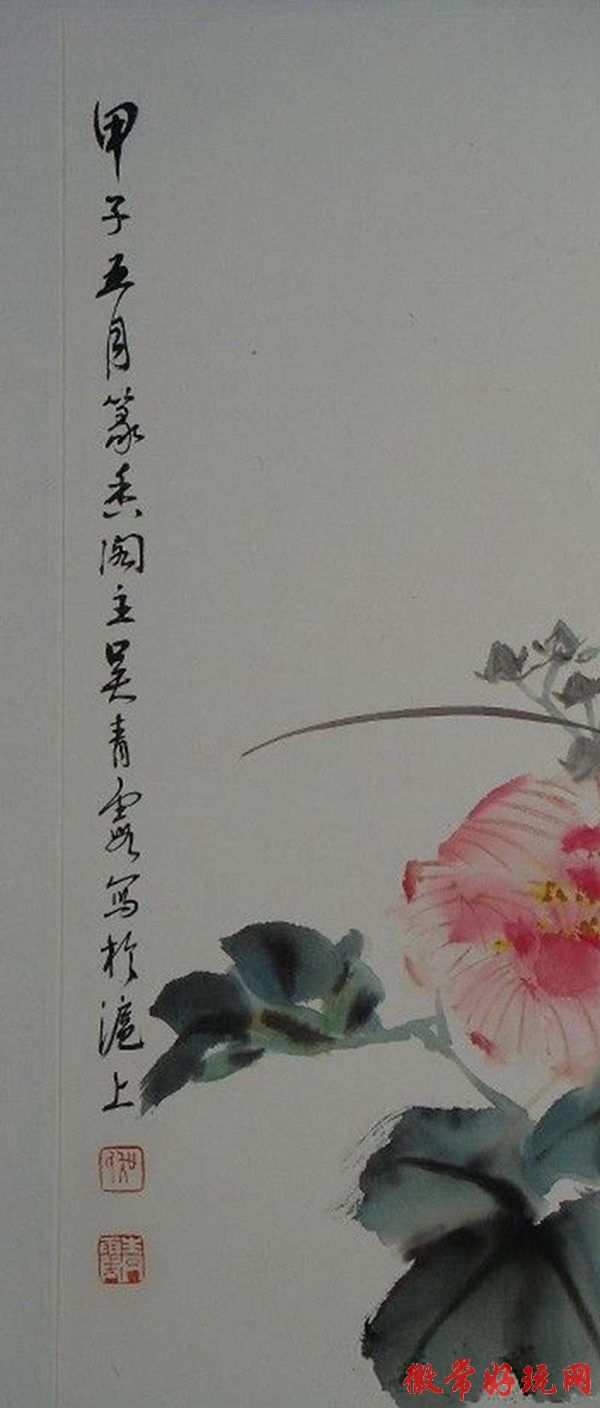 甲子五月篆香阁主吴青霞写於滬上
徽常好玩网